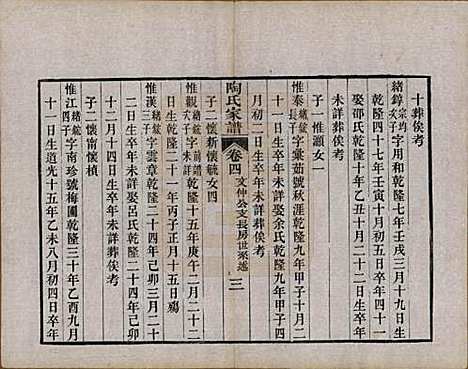 十葬俟考
緒錞宗鈞次子字用和乾隆七年壬戌三月十九日生
乾隆四十七年壬寅十月初五日卒年四十一
娶邵氏乾隆十年乙丑十月初三日生卒年
未詳葬俟考
子一惟灝女一
惟泰緒鋐長子字彙茹號秋涯乾隆九年甲子十月二
十八日生卒年未詳娶余氏乾隆九年甲子四
月初二日生卒年未詳葬俟考
子二懷新懷毓女四
陶氏家譜 卷四 文仲公支長房世系述 三
惟觀緒鋐次子字前譜乾隆十五年庚午二月二十二
日生乾隆二十一年丙子正月十五日殤
惟漢緒鋐三子字雲章乾隆二十四年己卯三月二十
二日生卒年未詳娶呂氏乾隆二十四年己卯
十二月十四日生卒年未詳葬俟考
子二懷甯懷楨
惟江緒鋐四子字南珍號梅圃乾隆三十年乙酉九月
十一日生道光十五年乙未八月初四日卒年